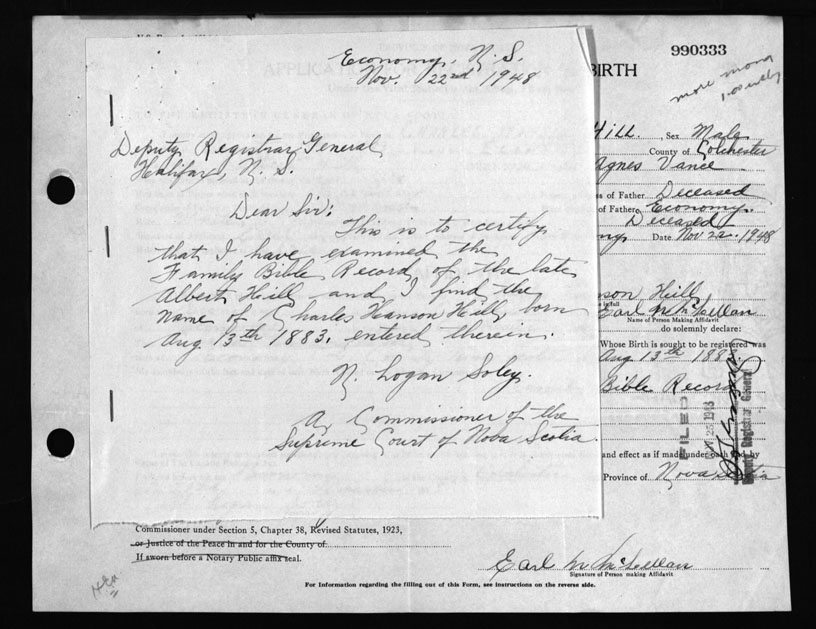 990333
BIRTH
more mony
Economy, N. S.
Nov. 22nd 1948
Deputy Registrar General,
Halifax, N. S.
Dear Sir:
This is to certify
that I have examined the
Family Bible Record of the late
Albert Hill and I find the
name of Charles Hanson Hill, born
Aug 13th 1883, entered therein.
N. Logan Soley.
A Commissioner of the
Supreme Court of Nova Scotia.
Hill. Sex Male
County of Colchester
Agnes Vance
of Father Deceased
of Father Economy.
Deceased
Date Nov. 22. 1948
nson Hill
in full
Earl McLellan
Name of Person Making Affidavit
do solemnly declare:
Whose Birth is sought to be registered was
Aug 13th 188
Bible Record
FILED
Deputy Registrar General
and effect as if made under oath and by
Province of Nova Scotia
Commissioner under Section 5, Chapter 38, Revised Statutes, 1923,
or Justice of the Peace in and for the County of
If sworn before a Notary Public affix seal.
Earl M McLellan
Signature of Person making Affidavit
For Information regarding the filling out of this Form, see instructions on the reverse side.